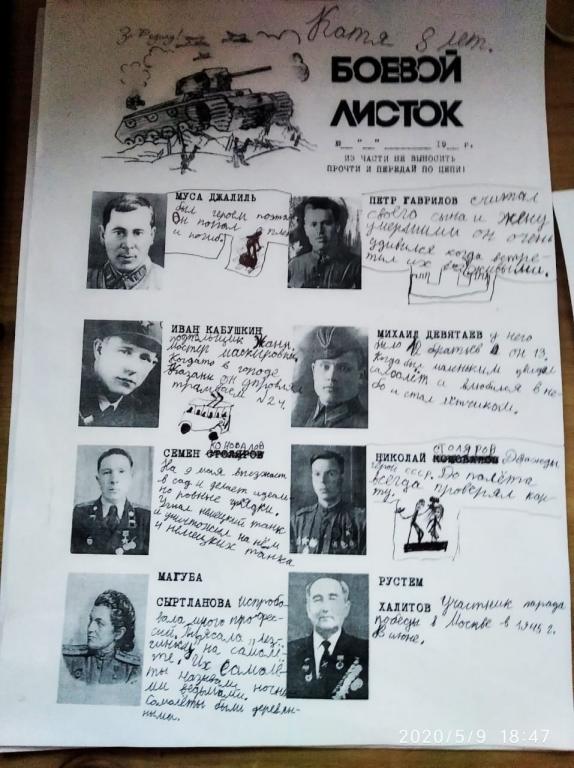 За Родину!
Катя 8 лет.
БОЕВОЙ
ЛИСТОК
№ __ "__" ________ 19__ г.
ИЗ ЧАСТИ НЕ ВЫНОСИТЬ
ПРОЧТИ И ПЕРЕДАЙ ПО ЦЕПИ!
МУСА ДЖАЛИЛЬ
был героем поэтом
Он попал в плен
и погиб.
ПЕТР ГАВРИЛОВ считал
своего сына и жену
умершими он очень
удивился когда встре-
тил их живыми.
ИВАН КАБУШКИН
подпольщик Жан.
Мастер маскировки.
Когдато в городе
Казани он управлял
трамваем №24.
МИХАИЛ ДЕВЯТАЕВ у него
было 12 братьев а он 13.
Когда был маленьким увидел
самолёт и влюбился в не-
бо и стал лётчиком.
КОНОВАЛОВ
СЕМЕН СТОЛЯРОВ
На 9 мая выезжает
в сад и делает идеаль-
но ровные грядки.
Угнал немецкий танк
и уничтожил на нём
4 немецких танка
СТОЛЯРОВ
НИКОЛАЙ КОНОВАЛОВ Дважды
герой СССР. До полёта
всегда проверял кар-
ту.
МАГУБА
СЫРТЛАНОВА Испробо-
вала много профес-
сий. Плясала „лез-
гинку" на самолё-
те. Их самолё-
ты называли ночны-
ми ведьмами.
Самолёты были деревян-
ными.
РУСТЕМ
ХАЛИТОВ Участник парада
победы в Москве в 1945 г.
В июне.
2020/5/9 18:47